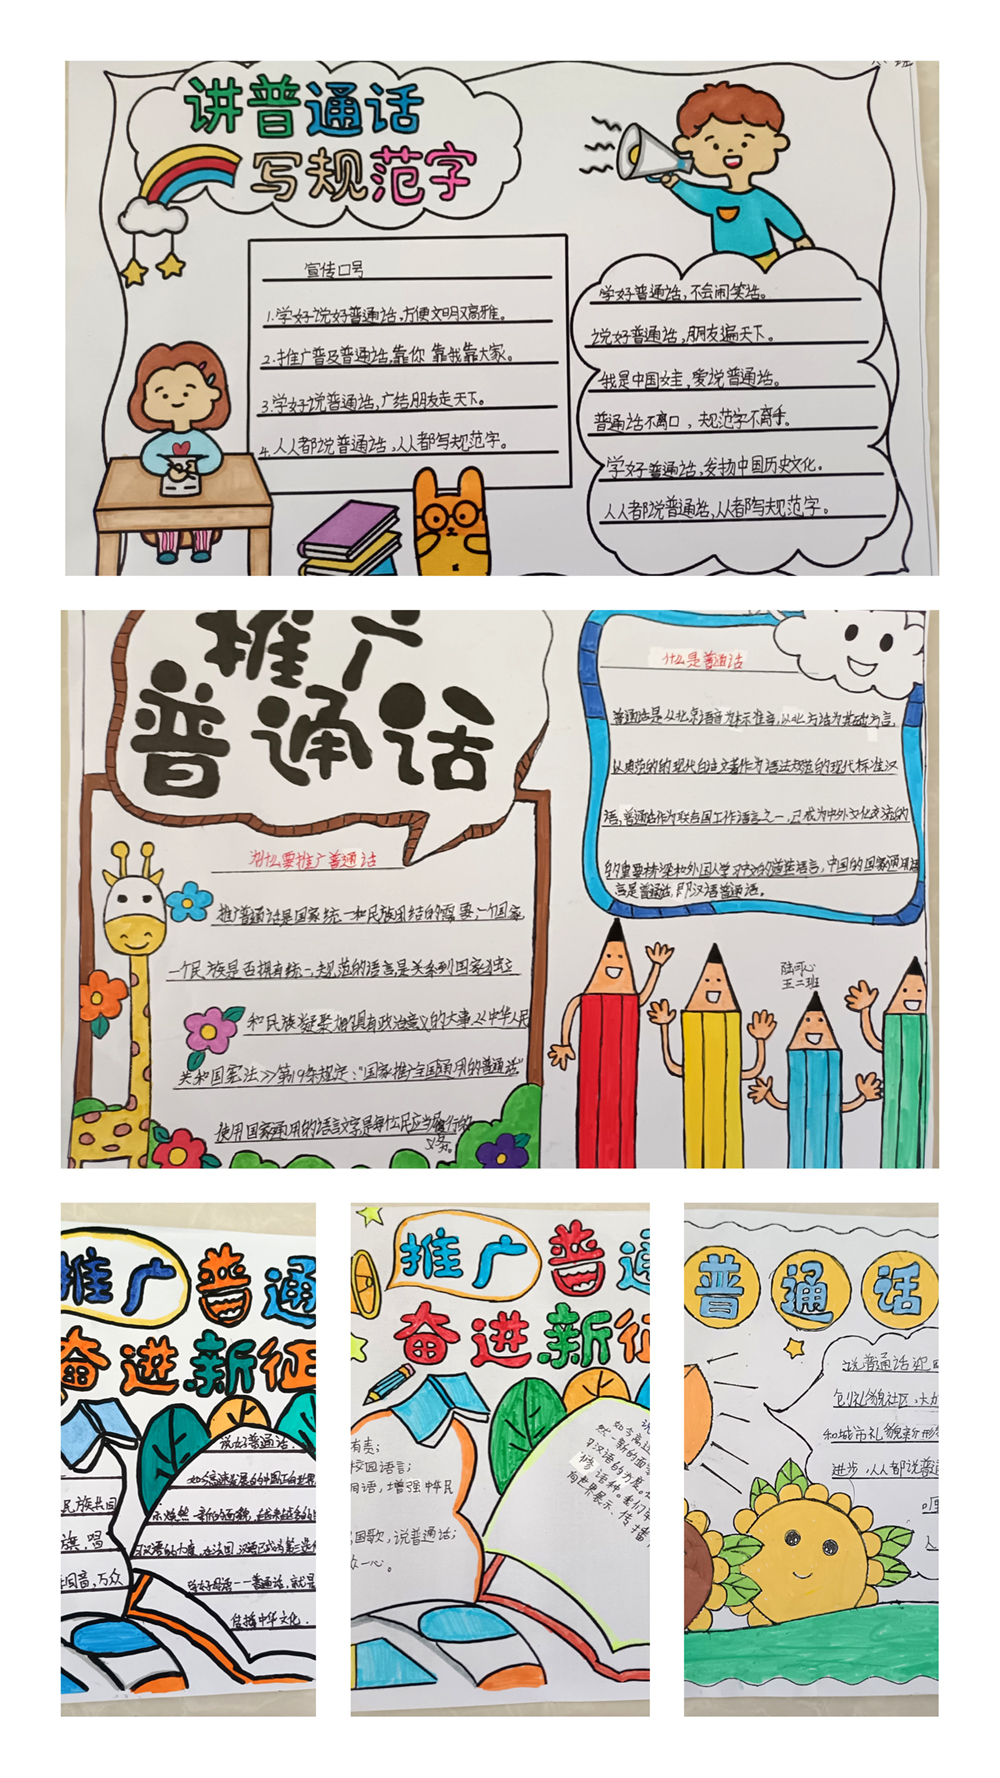 讲普通话
写规范字
宣传口号
1.学好说好普通话,方便文明又高雅。
2.推广普及普通话,靠你 靠我靠大家。
3.学好说普通话,广结朋友走天下。
4.人人都说普通话,人人都写规范字。
学好普通话,不会闹笑话。
说好普通话,朋友遍天下。
我是中国娃,爱说普通话。
普通话不离口，规范字不离手。
学好普通话,发扬中国历史文化。
人人都说普通话,人人都写规范字。
推广
普通话
为什么要推广普通话
推广普通话是国家统一和民族团结的需要,一个国家
一个民族是否拥有统一、规范的语言是关系到国家独立
和民族凝聚力的具有政治意义的大事,《中华人民
共和国宪法》第19条规定:"国家推广全国通用的普通话"
使用国家通用的语言文字是每位民应当履行的
义务。
什么是普通话
普通话是以北京语音为标准音,以北方话为基础方言,
以典范的的现代白话文著作为语法规范的现代标准汉
语,普通话作为联合国工作语言之一,已成为中外文化交流的
的重要桥梁和外国人学习中文的首选语言,中国的国家通用语
言是普通话,即汉语普通话。
陆可心
王二班
推广普通
奋进新征
说好普通话,
示焕然一新的面貌,
学好母语——普通话,就是
传播中华文化.
民族共同
旗,唱
同音,万众
推广普通
奋进新征
有责;
校园语言;
同语,增强中华民
国歌,说普通话;
众一心。
普通话
说普通话迎
创礼貌社区,大力
和城市礼貌新形
进步,人人都说普通